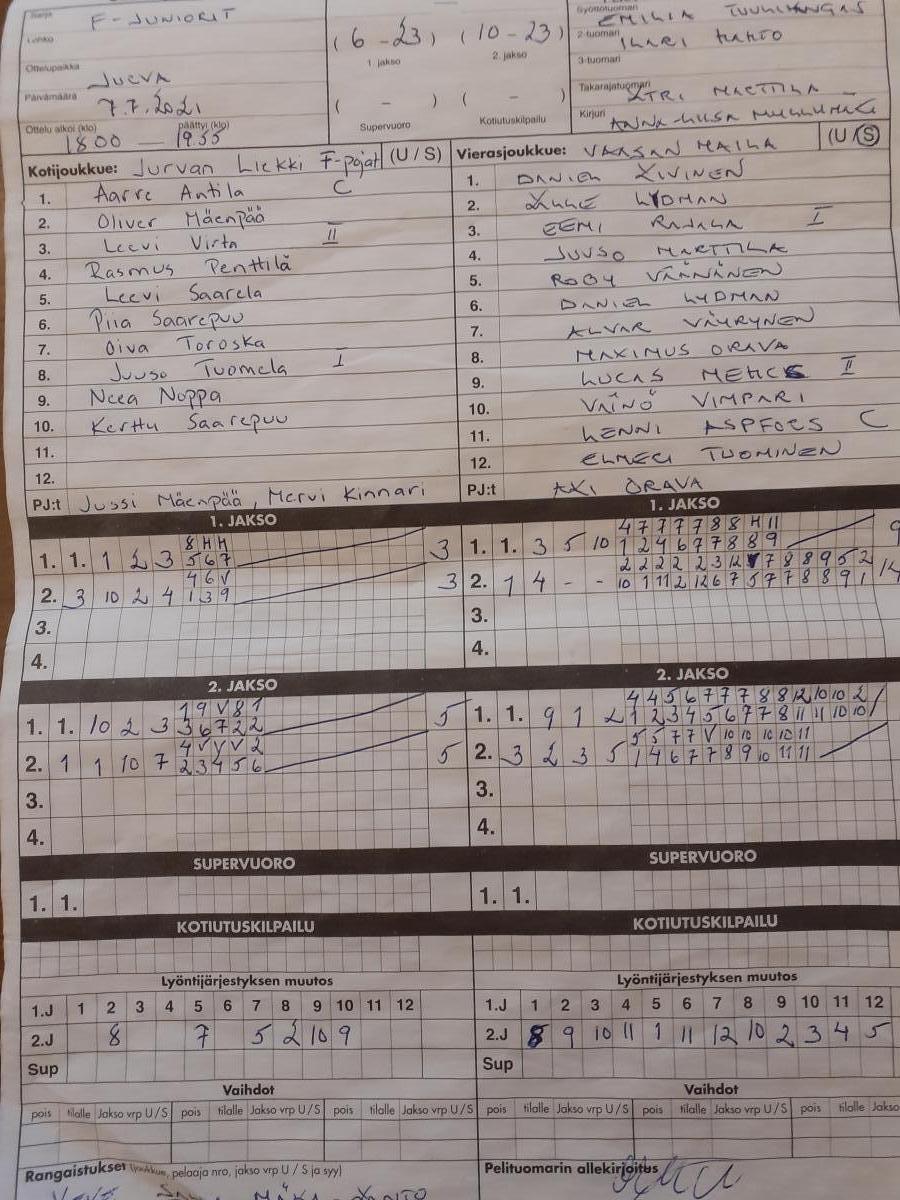 Sarja F-JUNIORIT
Lohko
Ottelupaikka JURVA
Päivämäärä 7.7.2021
Ottelu alkoi (klo) 18.00 — päättyi (klo) 19.55
(6 - 23) (10 - 23)
1. jakso 2. jakso
( - ) ( - )
Supervuoro Kotiutuskilpailu
Syöttötuomari EMILIA
2-tuomari ILARI HAHTO
3-tuomari
Takarajatuomari MARTTILA
Kirjuri ANNA-LIISA
Kotijoukkue: Jurvan Liekki F-pojat (U / S)
1. Aarre Antila C
2. Oliver Mäenpää
3. Leevi Virta II
4. Rasmus Penttilä
5. Leevi Saarela
6. Piia Saarepuu
7. Oiva Toroska
8. Juuso Tuomela I
9. Neea Noppa
10. Kerttu Saarepuu
11.
12.
PJ:t Jussi Mäenpää, Mervi Kinnari
Vierasjoukkue: VAASAN MAILA (U / S)
1. DANIEL IIVINEN
2. LYDMAN
3. EEMI RAJALA I
4. JUUSO MARTTILA
5. ROBY VÄÄNÄNEN
6. DANIEL LYDMAN
7. ALVAR VÄYRYNEN
8. MAXIMUS ORAVA
9. LUCAS II
10. VÄINÖ VIMPARI
11. LENNI ASPFORS C
12. ELMERI TUOMINEN
PJ:t AKI ORAVA
1. JAKSO
8 H H
1. 1. 1 2 3 5 6 7 3
4 6 V
2. 3 10 2 4 1 3 9 3
3.
4.
1. JAKSO
4 7 7 7 7 8 8 H 11
1. 1. 3 5 10 1 2 4 6 7 7 8 8 9 9
2. 1 4 - - 10 1 11 2 12 6 7 5 7 7 8 8 9 1 14
3.
4.
2. JAKSO
1 9 V 8 1
1. 1. 10 2 3 3 6 7 2 2 5
4 V V V 2
2. 1 1 10 7 2 3 4 5 6 5
3.
4.
2. JAKSO
4 4 5 6 7 7 7 8 8 12 10 10 2
1. 1. 9 1 2 1 2 3 4 5 6 7 7 8 11 11 10 10
5 5 7 7 V 10 10 10 10 11
2. 3 2 3 5 1 4 6 7 7 8 9 10 11 11
3.
4.
SUPERVUORO
1. 1.
SUPERVUORO
1. 1.
KOTIUTUSKILPAILU
KOTIUTUSKILPAILU
Lyöntijärjestyksen muutos
1.J 1 2 3 4 5 6 7 8 9 10 11 12
2.J 8 7 5 2 10 9
Sup
Lyöntijärjestyksen muutos
1.J 1 2 3 4 5 6 7 8 9 10 11 12
2.J 8 9 10 11 1 11 12 10 2 3 4 5
Sup
Vaihdot
pois tilalle Jakso vrp U / S pois tilalle Jakso vrp U / S pois tilalle Jakso vrp U / S
Vaihdot
pois tilalle Jakso vrp U / S pois tilalle Jakso vrp U / S pois tilalle Jakso
Rangaistukset (joukkue, pelaaja nro, jakso vrp U / S ja syy)
Pelituomarin allekirjoitus